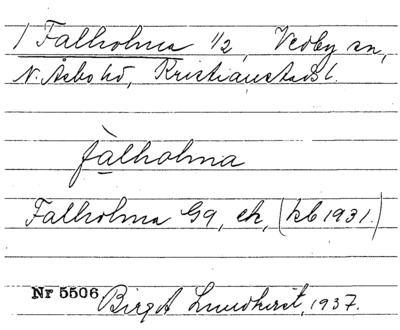 1 Falholma 1/2, Vedby sn,
N. Åsbo hd, Kristianstads l.
fàlholma
Falholma G9, ek, (kb 1931.)
Nr 5506 Birgit Lundkvist, 1937.